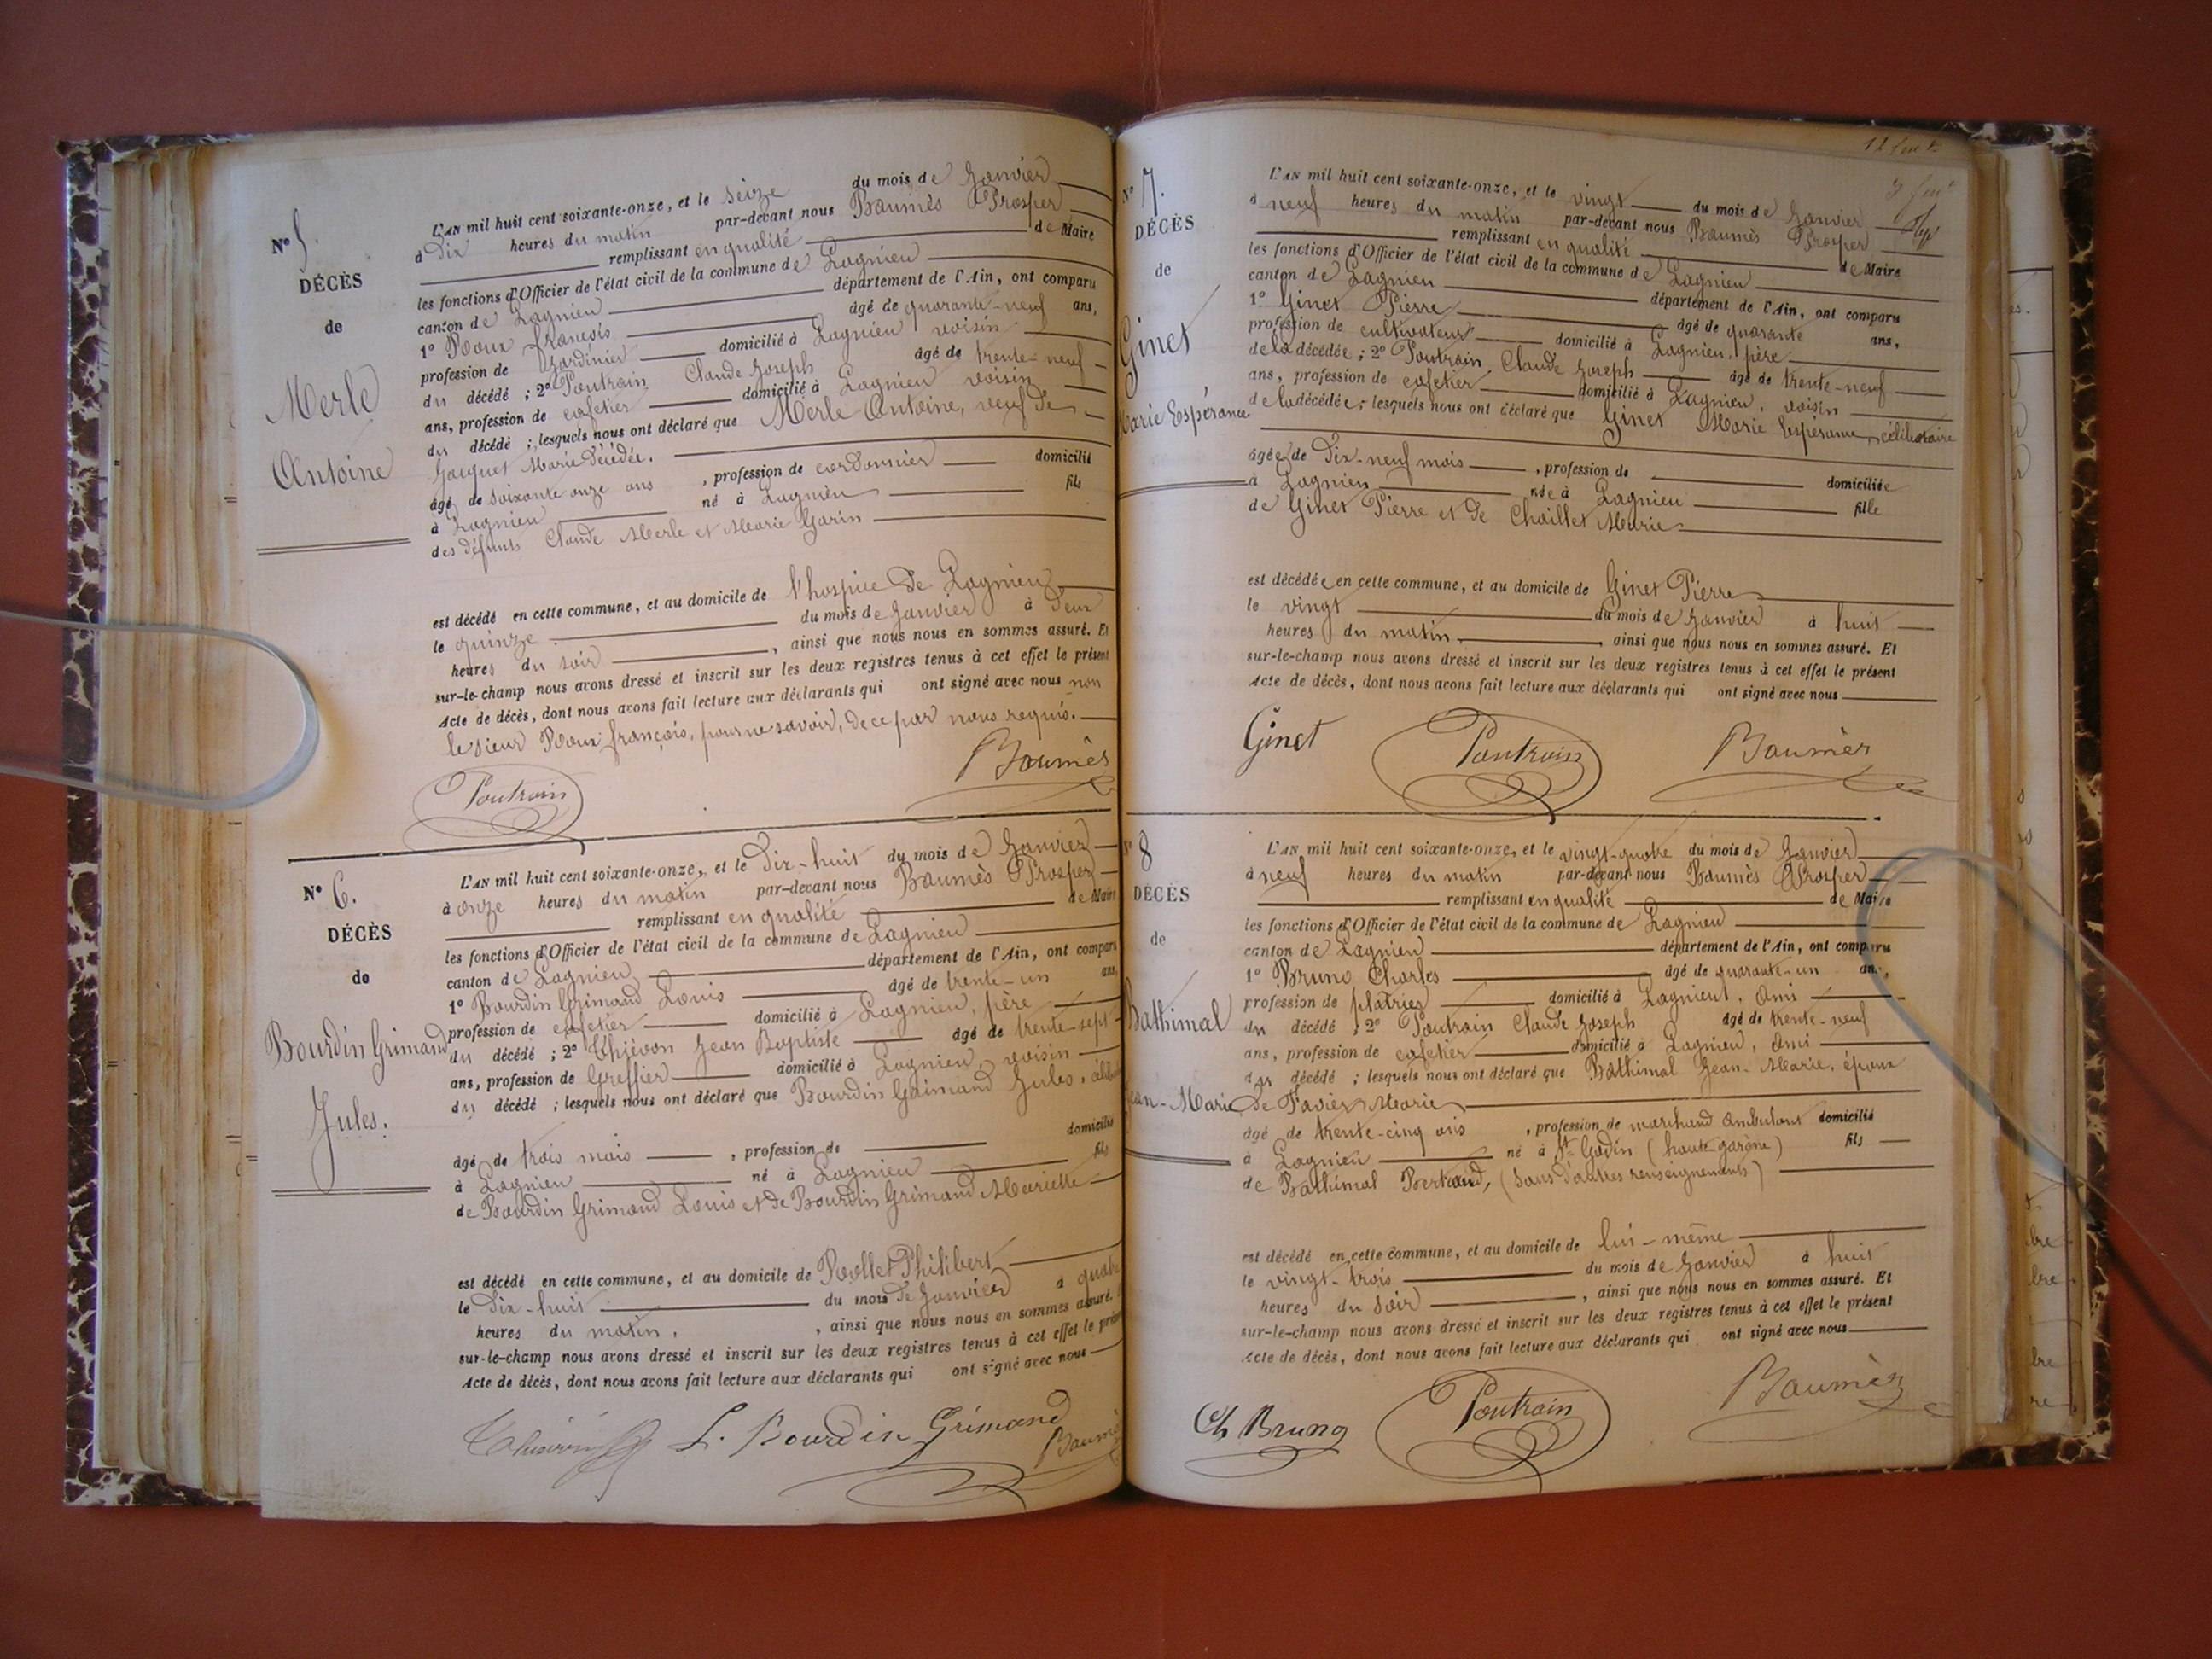 N° 5.
DÉCÈS
de
Merle
Antoine
L'AN mil huit cent soixante-onze, et le seize du mois de Janvier
à dix heures du matin par-devant nous Baumès Prosper
remplissant en qualité de Maire
les fonctions d'Officier de l'état civil de la commune de Lagnieu
canton de Lagnieu département de l'Ain, ont comparu
1° Roux françois âgé de quarante-neuf ans,
profession de Jardinier domicilié à Lagnieu voisin
du décédé ; 2° Poutrain Claude Joseph âgé de trente-neuf
ans, profession de cafetier domicilié à Lagnieu voisin
du décédé ; lesquels nous ont déclaré que Merle Antoine, veuf de
Jacquet Marie décédée.
âgé de soixante onze ans, profession de cordonnier domicilié
à Lagnieu né à Lagnieu fils
des défunts Claude Merle et Marie Garin
est décédé en cette commune, et au domicile de l'hospice de Lagnieu
le quinze du mois de Janvier à deux
heures du soir, ainsi que nous nous en sommes assuré. Et
sur-le-champ nous avons dressé et inscrit sur les deux registres tenus à cet effet le présent
Acte de décès, dont nous avons fait lecture aux déclarants qui ont signé avec nous non
le sieur Roux françois, pour ne savoir, de ce par nous requis.
Poutrain Baumès
N° 6.
DÉCÈS
de
Bourdin Grimaud
Jules.
L'AN mil huit cent soixante-onze, et le dix-huit du mois de Janvier
à onze heures du matin par-devant nous Baumès Prosper
remplissant en qualité de Maire
les fonctions d'Officier de l'état civil de la commune de Lagnieu
canton de Lagnieu département de l'Ain, ont comparu
1° Bourdin Grimaud Louis âgé de trente-un ans,
profession de cafetier domicilié à Lagnieu, père
du décédé ; 2° Thiévon Jean Baptiste âgé de trente-sept
ans, profession de Greffier domicilié à Lagnieu, voisin
du décédé ; lesquels nous ont déclaré que Bourdin Grimaud Jules,
âgé de trois mois, profession de domicilié
à Lagnieu né à Lagnieu fils
de Bourdin Grimaud Louis et de Bourdin Grimaud Mariette
est décédé en cette commune, et au domicile de Rollet Philibert
le dix-huit du mois de Janvier à quatre
heures du matin, ainsi que nous nous en sommes assuré.
sur-le-champ nous avons dressé et inscrit sur les deux registres tenus à cet effet le présent
Acte de décès, dont nous avons fait lecture aux déclarants qui ont signé avec nous
L. Bourdin Grimand Baumès
N° 7.
DÉCÈS
de
Ginet
Marie Espérance
L'AN mil huit cent soixante-onze, et le vingt du mois de Janvier
à neuf heures du matin par-devant nous Baumès Prosper
remplissant en qualité de Maire
les fonctions d'Officier de l'état civil de la commune de Lagnieu
canton de Lagnieu département de l'Ain, ont comparu
1° Ginet Pierre âgé de quarante ans,
profession de cultivateur domicilié à Lagnieu, père
de la décédée ; 2° Poutrain Claude Joseph âgé de trente-neuf
ans, profession de cafetier domicilié à Lagnieu, voisin
de la décédée ; lesquels nous ont déclaré que Ginet Marie Espérance, célibataire
âgée de dix-neuf mois, profession de domiciliée
à Lagnieu née à Lagnieu fille
de Ginet Pierre et de Chaillet Marie
est décédée en cette commune, et au domicile de Ginet Pierre
le vingt du mois de Janvier à huit
heures du matin, ainsi que nous nous en sommes assuré. Et
sur-le-champ nous avons dressé et inscrit sur les deux registres tenus à cet effet le présent
Acte de décès, dont nous avons fait lecture aux déclarants qui ont signé avec nous
Ginet Poutrain Baumès
N° 8
DÉCÈS
de
Bathimal
Jean-Marie
L'AN mil huit cent soixante-onze, et le vingt-quatre du mois de Janvier
à neuf heures du matin par-devant nous Baumès Prosper
remplissant en qualité de Maire
les fonctions d'Officier de l'état civil de la commune de Lagnieu
canton de Lagnieu département de l'Ain, ont comparu
1° Bruno Charles âgé de quarante-un ans,
profession de plâtrier domicilié à Lagnieu, ami
du décédé ; 2° Poutrain Claude Joseph âgé de trente-neuf
ans, profession de cafetier domicilié à Lagnieu, ami
du décédé ; lesquels nous ont déclaré que Bathimal Jean-Marie, époux
de Favier Marie
âgé de trente-cinq ans, profession de marchand ambulant domicilié
à Lagnieu né à St Godin (haute garône) fils
de Bathimal Bertrand, (sans d'autres renseignements)
est décédé en cette commune, et au domicile de lui-même
le vingt-trois du mois de Janvier à huit
heures du soir, ainsi que nous nous en sommes assuré. Et
sur-le-champ nous avons dressé et inscrit sur les deux registres tenus à cet effet le présent
Acte de décès, dont nous avons fait lecture aux déclarants qui ont signé avec nous
Ch Bruno Poutrain Baumès